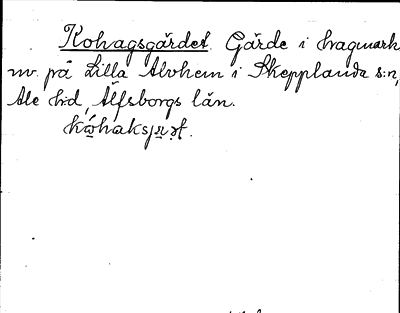 Kohagsgärdet. Gärde i hagmark
nv. på Lilla Alvhem i Skepplanda s:n,
Ale h:d, Älfsborgs län.